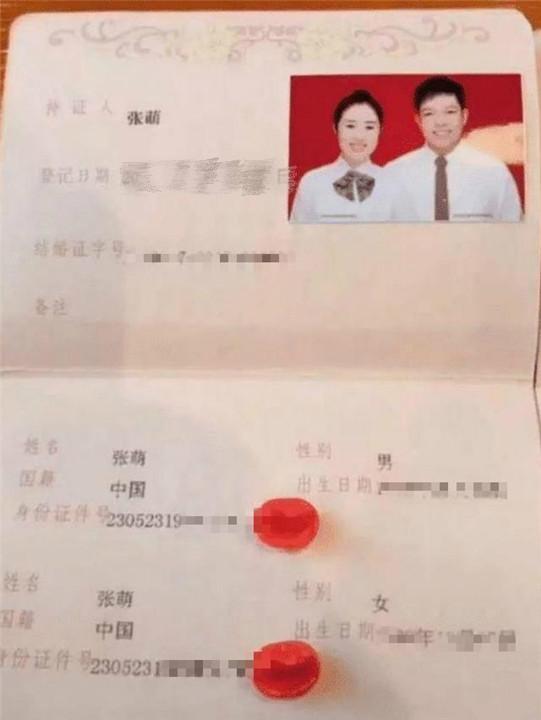 持证人 张萌
登记日期 20 日
结婚证字号
备注
姓名 张萌 性别 男
国籍 中国 出生日期
身份证件号 23052319
姓名 张萌 性别 女
国籍 中国 出生日期 年 月 日
身份证件号 2305231